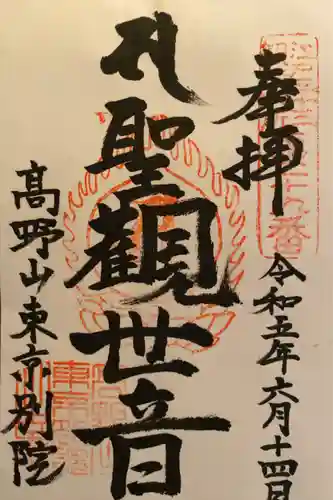 奉拝
令和五年六月十四日
聖觀世音
高野山東京別院